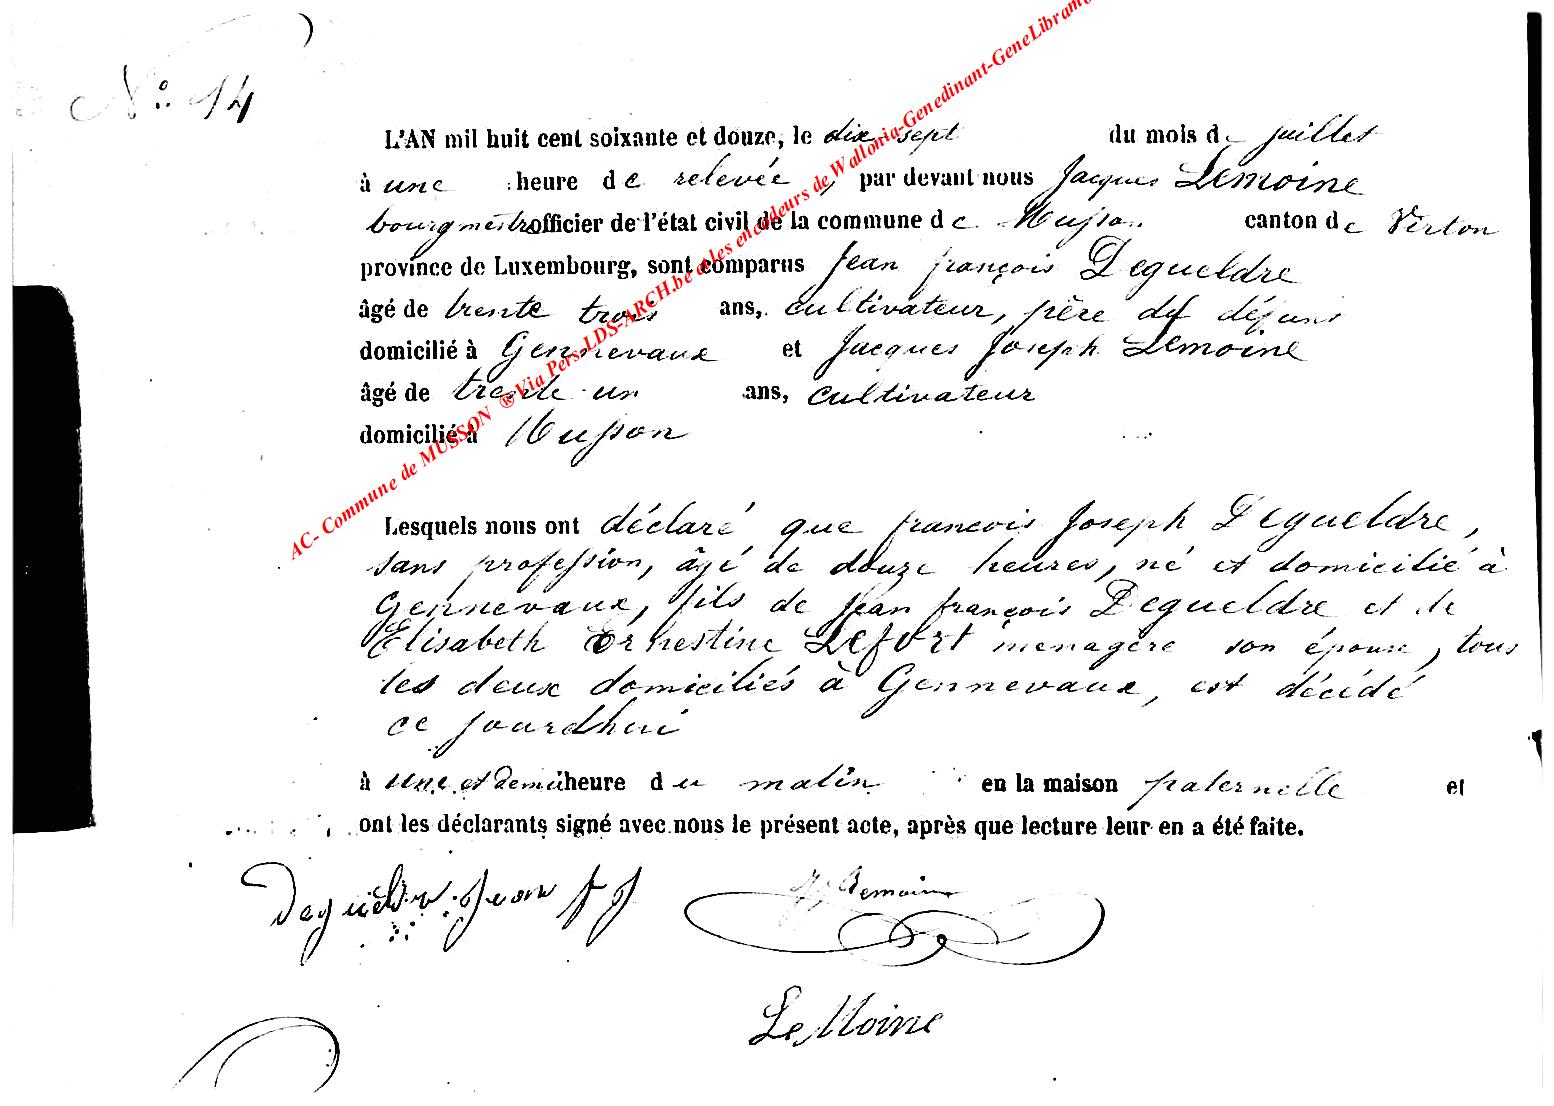 N.° 14
L'AN mil huit cent soixante et douze, le dix sept du mois de juillet
à une heure de relevée, par devant nous Jacques Lemoine
bourgmestre officier de l'état civil de la commune de Musson canton de Virton
province de Luxembourg, sont comparus Jean françois Degueldre
âgé de trente trois ans, cultivateur, père du défunt
domicilié à Gennevaux et Jacques Joseph Lemoine
âgé de trente un ans, cultivateur
domicilié à Musson
Lesquels nous ont déclaré que francois Joseph Degueldre,
sans profession, âgé de douze heures, né et domicilié à
Gennevaux, fils de Jean françois Degueldre et de
Elisabeth Ernestine Lefort ménagère son épouse, tous
les deux domiciliés à Gennevaux, est décédé
ce jourdhui
à une et demi heure du matin en la maison paternelle et
ont les déclarants signé avec nous le présent acte, après que lecture leur en a été faite.
Degueldre Jean JJ Lemoine
LeMoine
AC- Commune de MUSSON ® Via Pers-LDS-ARCH.be et les encodeurs de Wallonia-Genedinant-GeneLibram